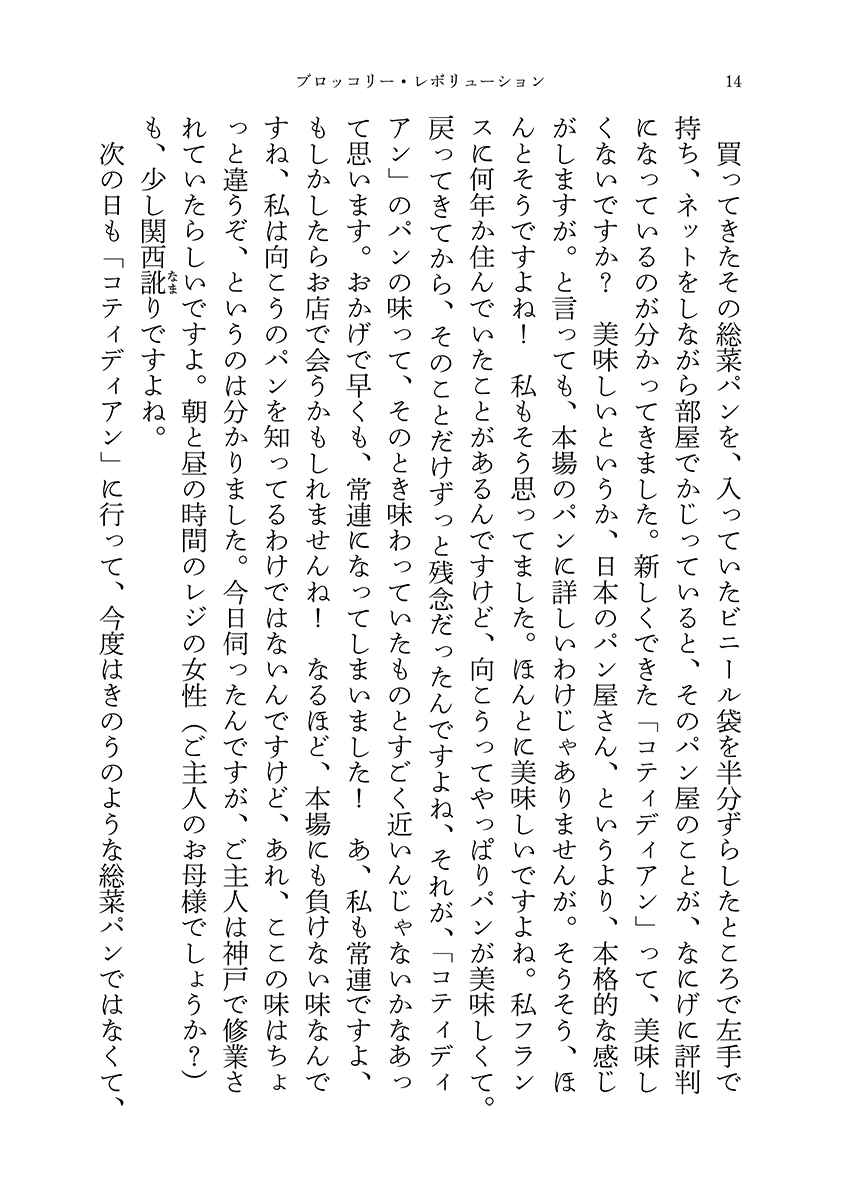 ブロッコリー・レボリューション
14
　買ってきたその総菜パンを、入っていたビニール袋を半分ずらしたところで左手で
持ち、ネットをしながら部屋でかじっていると、そのパン屋のことが、なにげに評判
になっているのが分かってきました。新しくできた「コティディアン」って、美味し
くないですか？　美味しいというか、日本のパン屋さん、というより、本格的な感じ
がしますが。と言っても、本場のパンに詳しいわけじゃありませんが。そうそう、ほ
んとそうですよね！　私もそう思ってました。ほんとに美味しいですよね。私フラン
スに何年か住んでいたことがあるんですけど、向こうってやっぱりパンが美味しくて。
戻ってきてから、そのことだけずっと残念だったんですよね、それが、「コティディ
アン」のパンの味って、そのとき味わっていたものとすごく近いんじゃないかなあっ
て思います。おかげで早くも、常連になってしまいました！　あ、私も常連ですよ、
もしかしたらお店で会うかもしれませんね！　なるほど、本場にも負けない味なんで
すね、私は向こうのパンを知ってるわけではないんですけど、あれ、ここの味はちょ
っと違うぞ、というのは分かりました。今日伺ったんですが、ご主人は神戸で修業さ
れていたらしいですよ。朝と昼の時間のレジの女性（ご主人のお母様でしょうか？）
も、少し関西訛なまりですよね。
　次の日も「コティディアン」に行って、今度はきのうのような総菜パンではなくて、